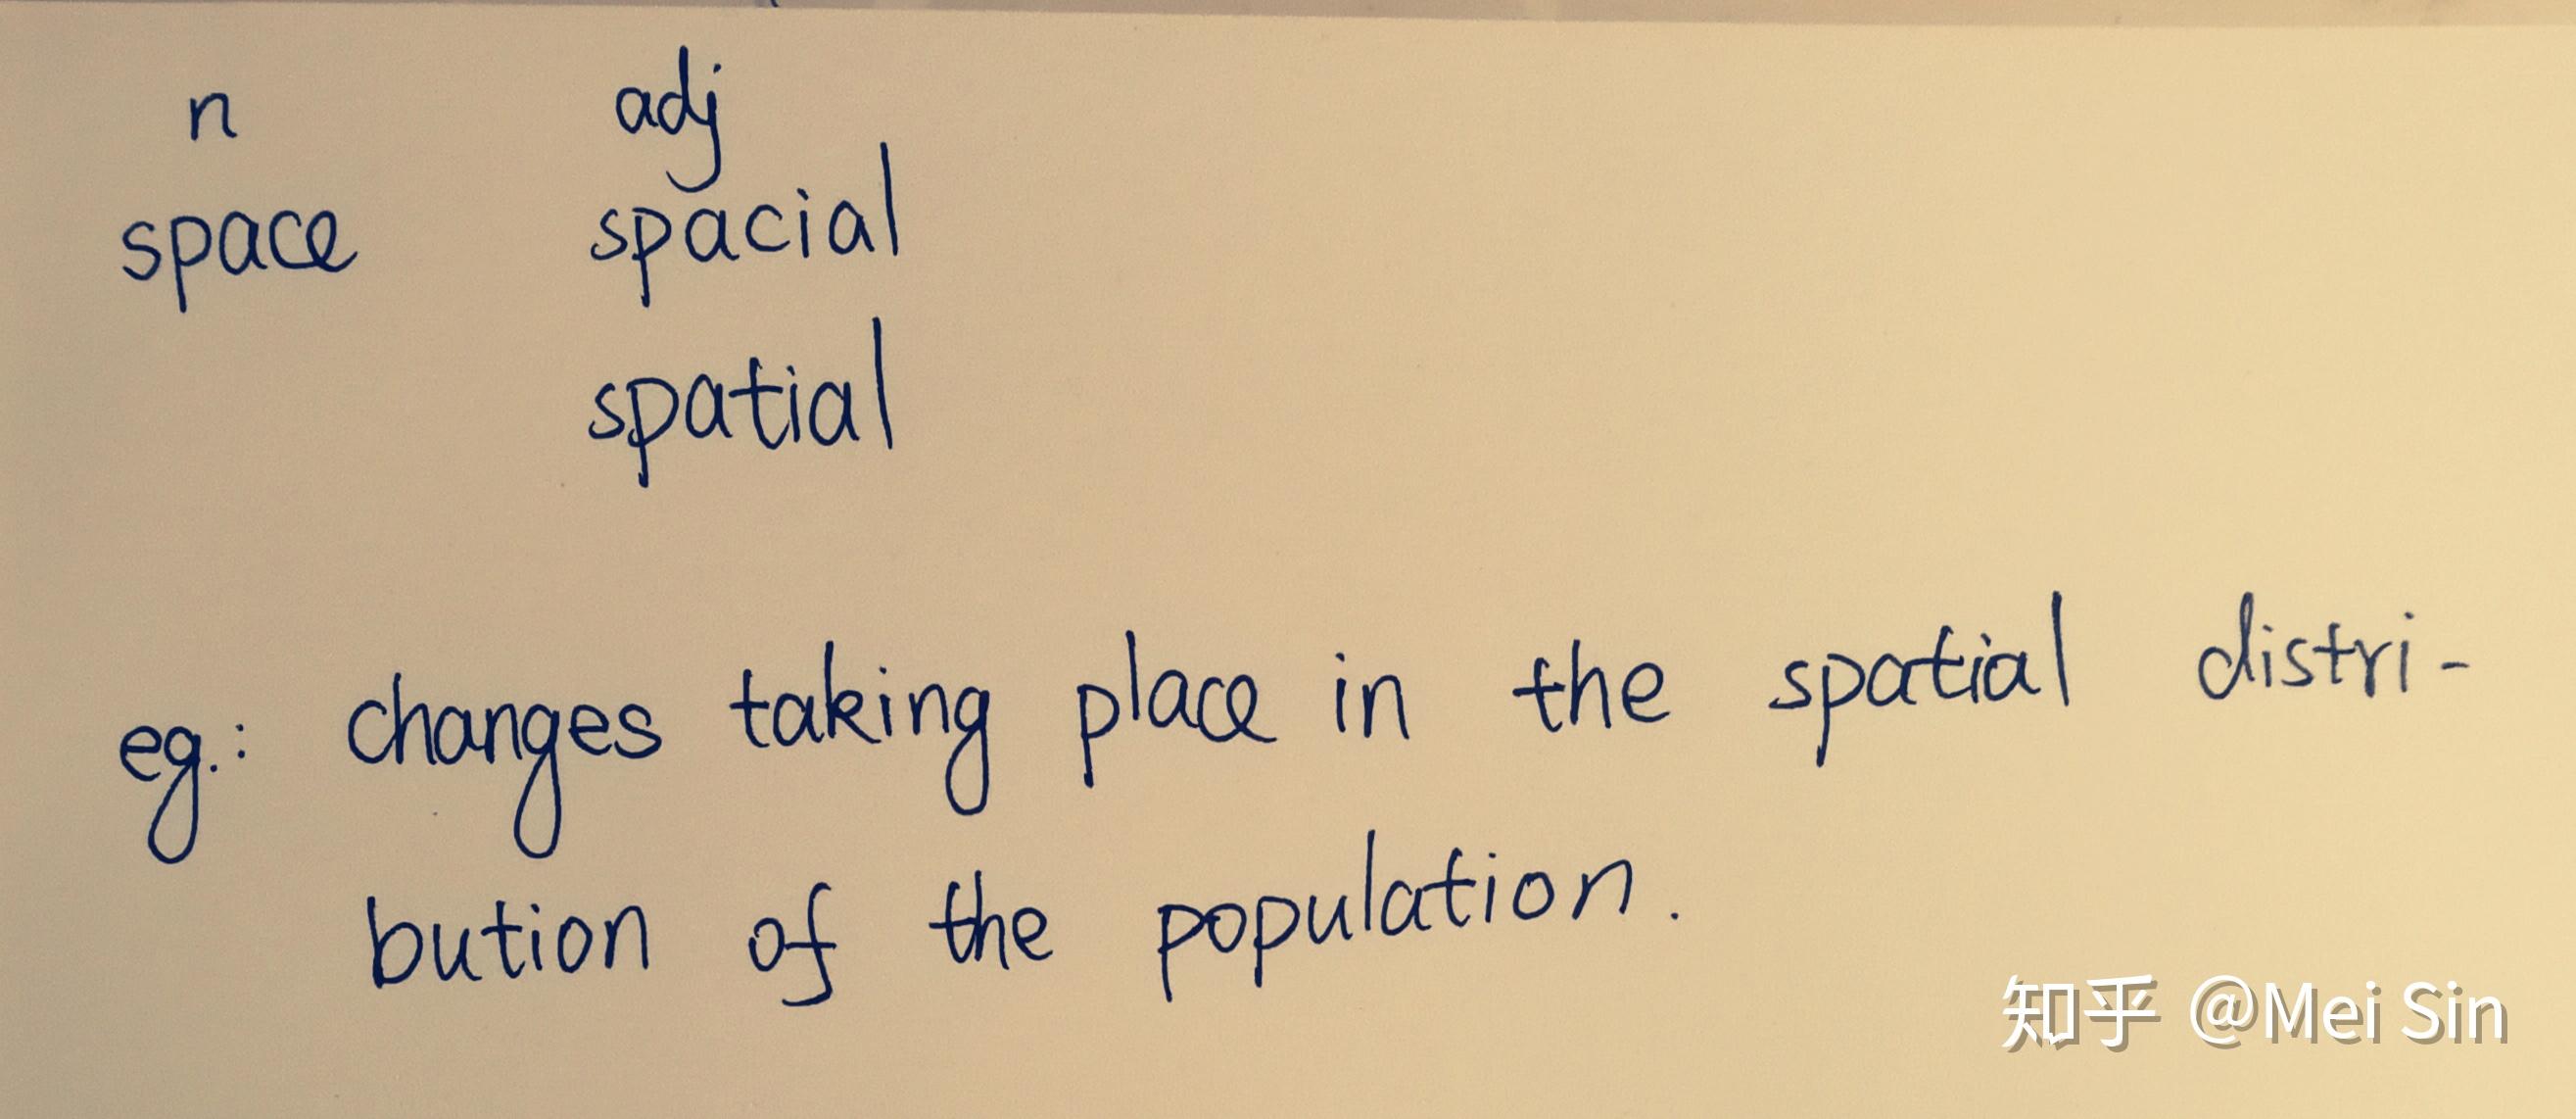 n adj
space spacial
spatial
eg.: changes taking place in the spatial distri-
bution of the population.
知乎 @Mei Sin